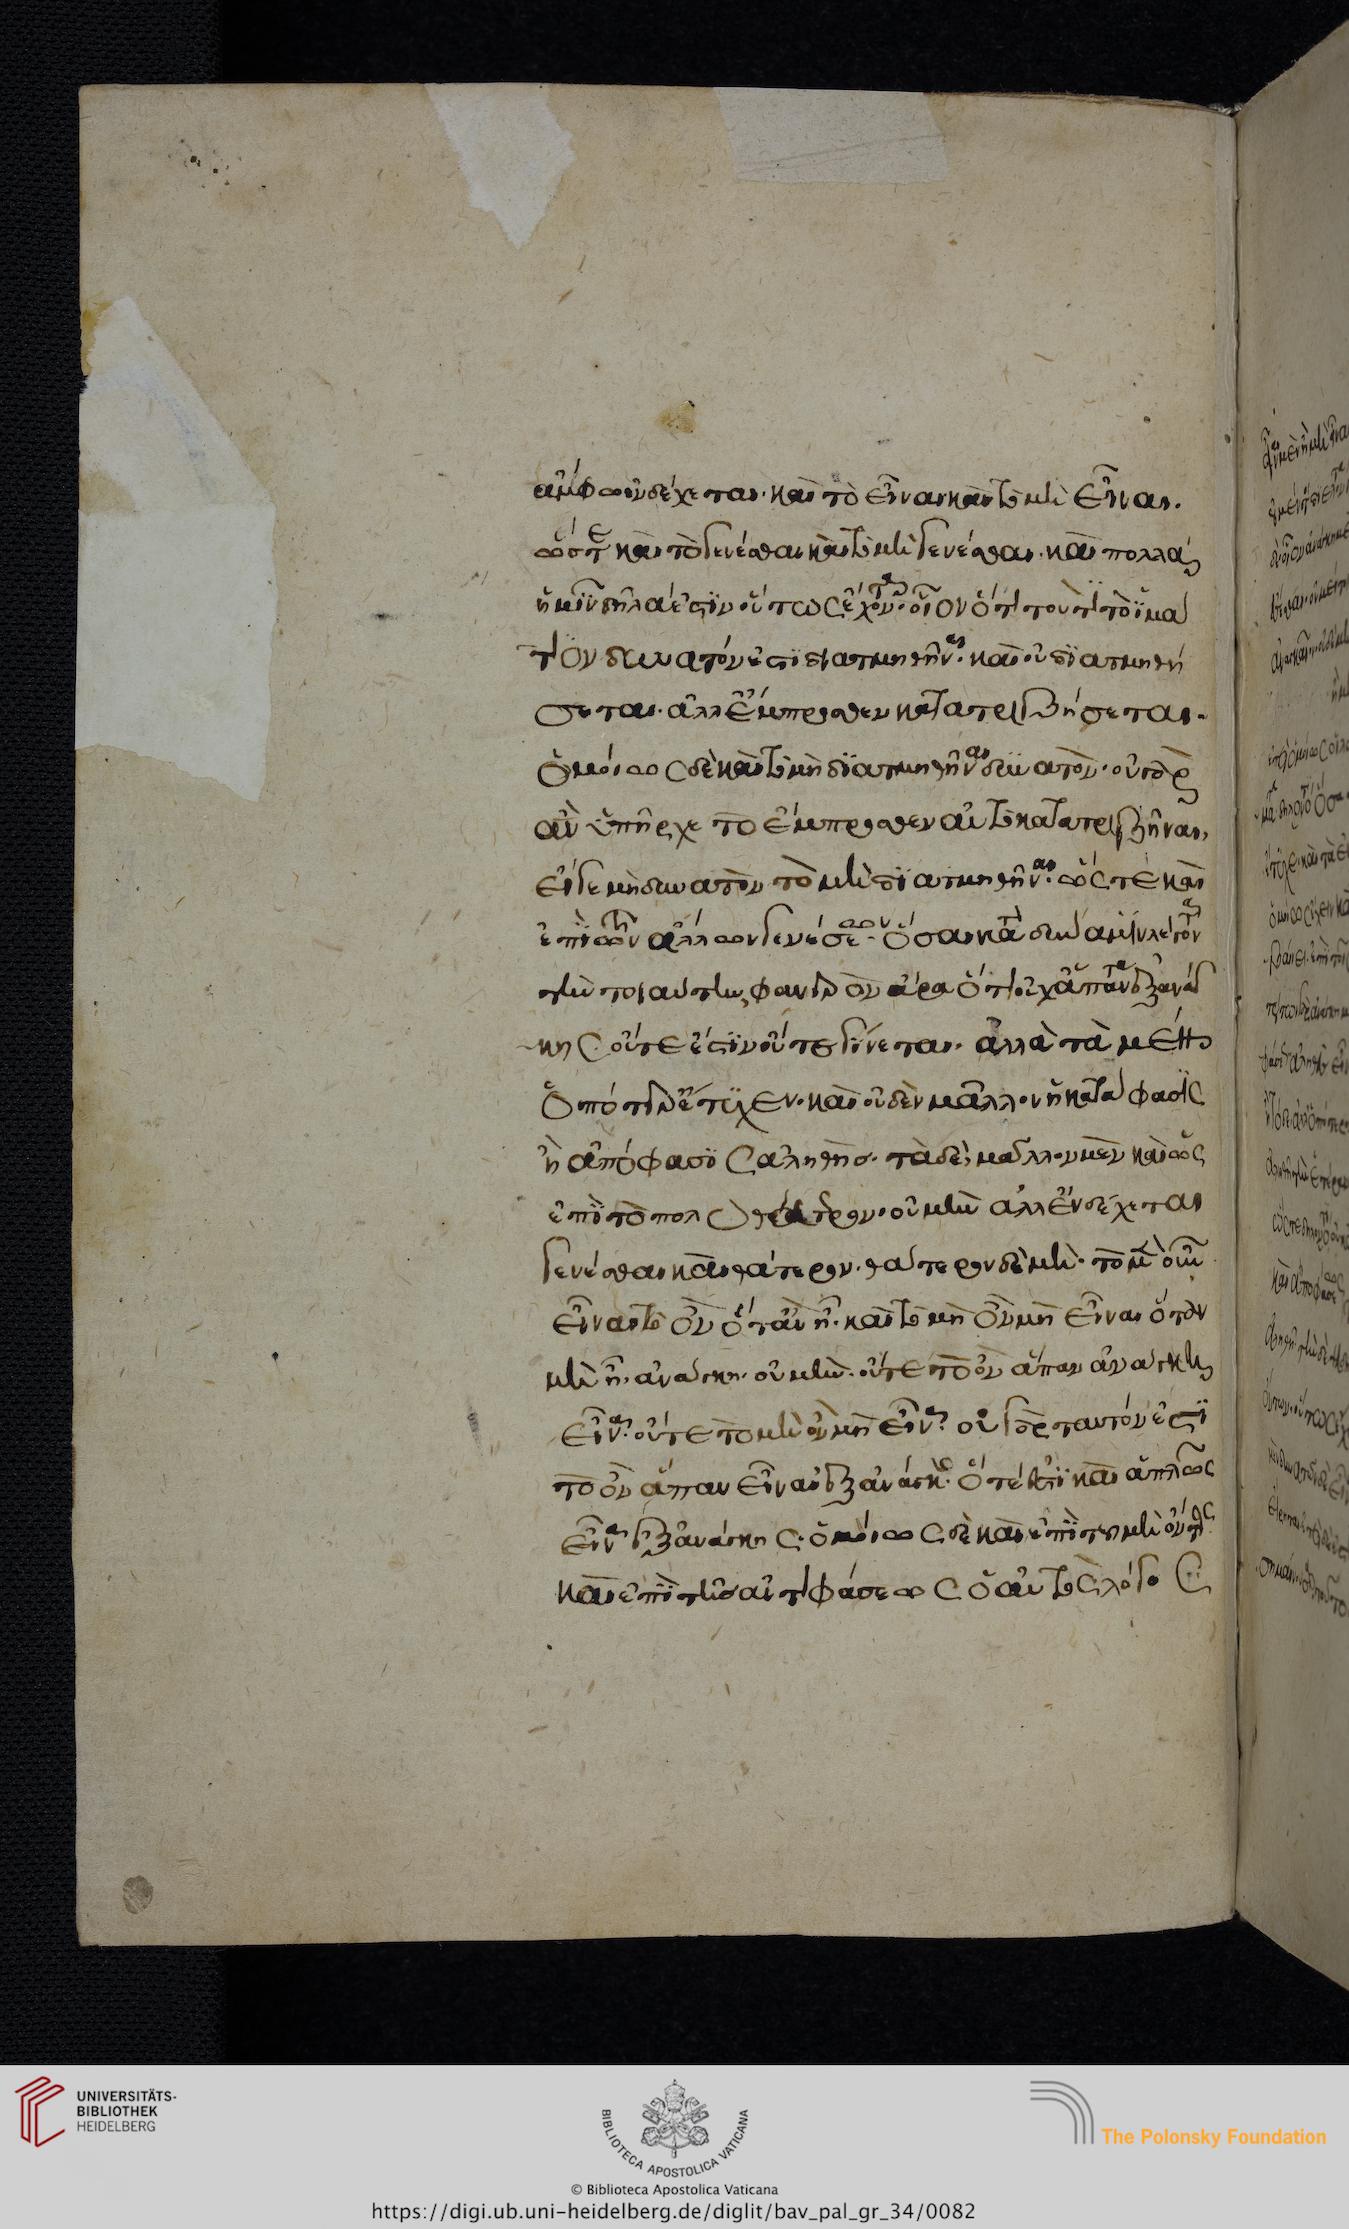 ἄμφω ἐνδέχεται· καὶ τὸ εἶναι καὶ τὸ μὴ εἶναι.
ὥστε καὶ τὸ γενέσθαι καὶ τὸ μὴ γενέσθαι· καὶ πολλὰ
ἡμῖν δῆλά ἐστιν οὕτως ἔχοντα· οἷον ὅτι τουτὶ τὸ ἱμά
τιον δυνατόν ἐστι διατμηθῆναι· καὶ οὐ διατμηθή
σεται· ἀλλ' ἔμπροσθεν κατατριβήσεται·
ὁμοίως δὲ καὶ τὸ μὴ διατμηθῆναι δυνατόν· οὐ γὰρ
ἂν ὑπῆρχε τὸ ἔμπροσθεν αὐτὸ κατατριβῆναι,
εἴγε μὴ δυνατὸν τὸ μὴ διατμηθῆναι· ὥστε καὶ
ἐπὶ τῶν ἄλλων γενέσεων· ὅσαι κατὰ δύναμιν λέγονται
τὴν τοιαύτην, φανερὸν ἄρα ὅτι οὐχ ἅπαντα ἐξ ἀνάγ
κης οὔτε ἔστιν οὔτε γίνεται· ἀλλὰ τὰ μὲν
ὁπότερ' ἔτυχεν· καὶ οὐδὲν μᾶλλον ἢ κατάφασις
ἢ ἀπόφασις ἀληθής· τὰ δὲ, μᾶλλον μὲν καὶ ὡς
ἐπὶ τὸ πολὺ θάτερον· οὐ μὴν ἀλλ' ἐνδέχεται
γενέσθαι καὶ θάτερον· θάτερον δὲ μή· τὸ μὲν οὖν
εἶναι τὸ ὂν ὅταν ᾖ· καὶ τὸ μὴ ὂν μὴ εἶναι ὅταν
μὴ ᾖ· ἀνάγκη· οὐ μὴν· οὔτε τὸ ὂν ἅπαν ἀνάγκη
εἶναι· οὔτε τὸ μὴ ὂν μὴ εἶναι· οὐ γὰρ ταυτόν ἐστι
τὸ ὂν ἅπαν εἶναι ἐξ ἀνάγκης· ὅτε ἐστὶ καὶ ἁπλῶς
εἶναι ἐξ ἀνάγκης· ὁμοίως δὲ καὶ ἐπὶ τοῦ μὴ ὄντος
καὶ ἐπὶ τῆς ἀντιφάσεως ὁ αὐτὸς λόγος
UNIVERSITÄTS-
BIBLIOTHEK
HEIDELBERG
BIBLIOTECA APOSTOLICA VATICANA
The Polonsky Foundation
© Biblioteca Apostolica Vaticana
https://digi.ub.uni-heidelberg.de/diglit/bav_pal_gr_34/0082